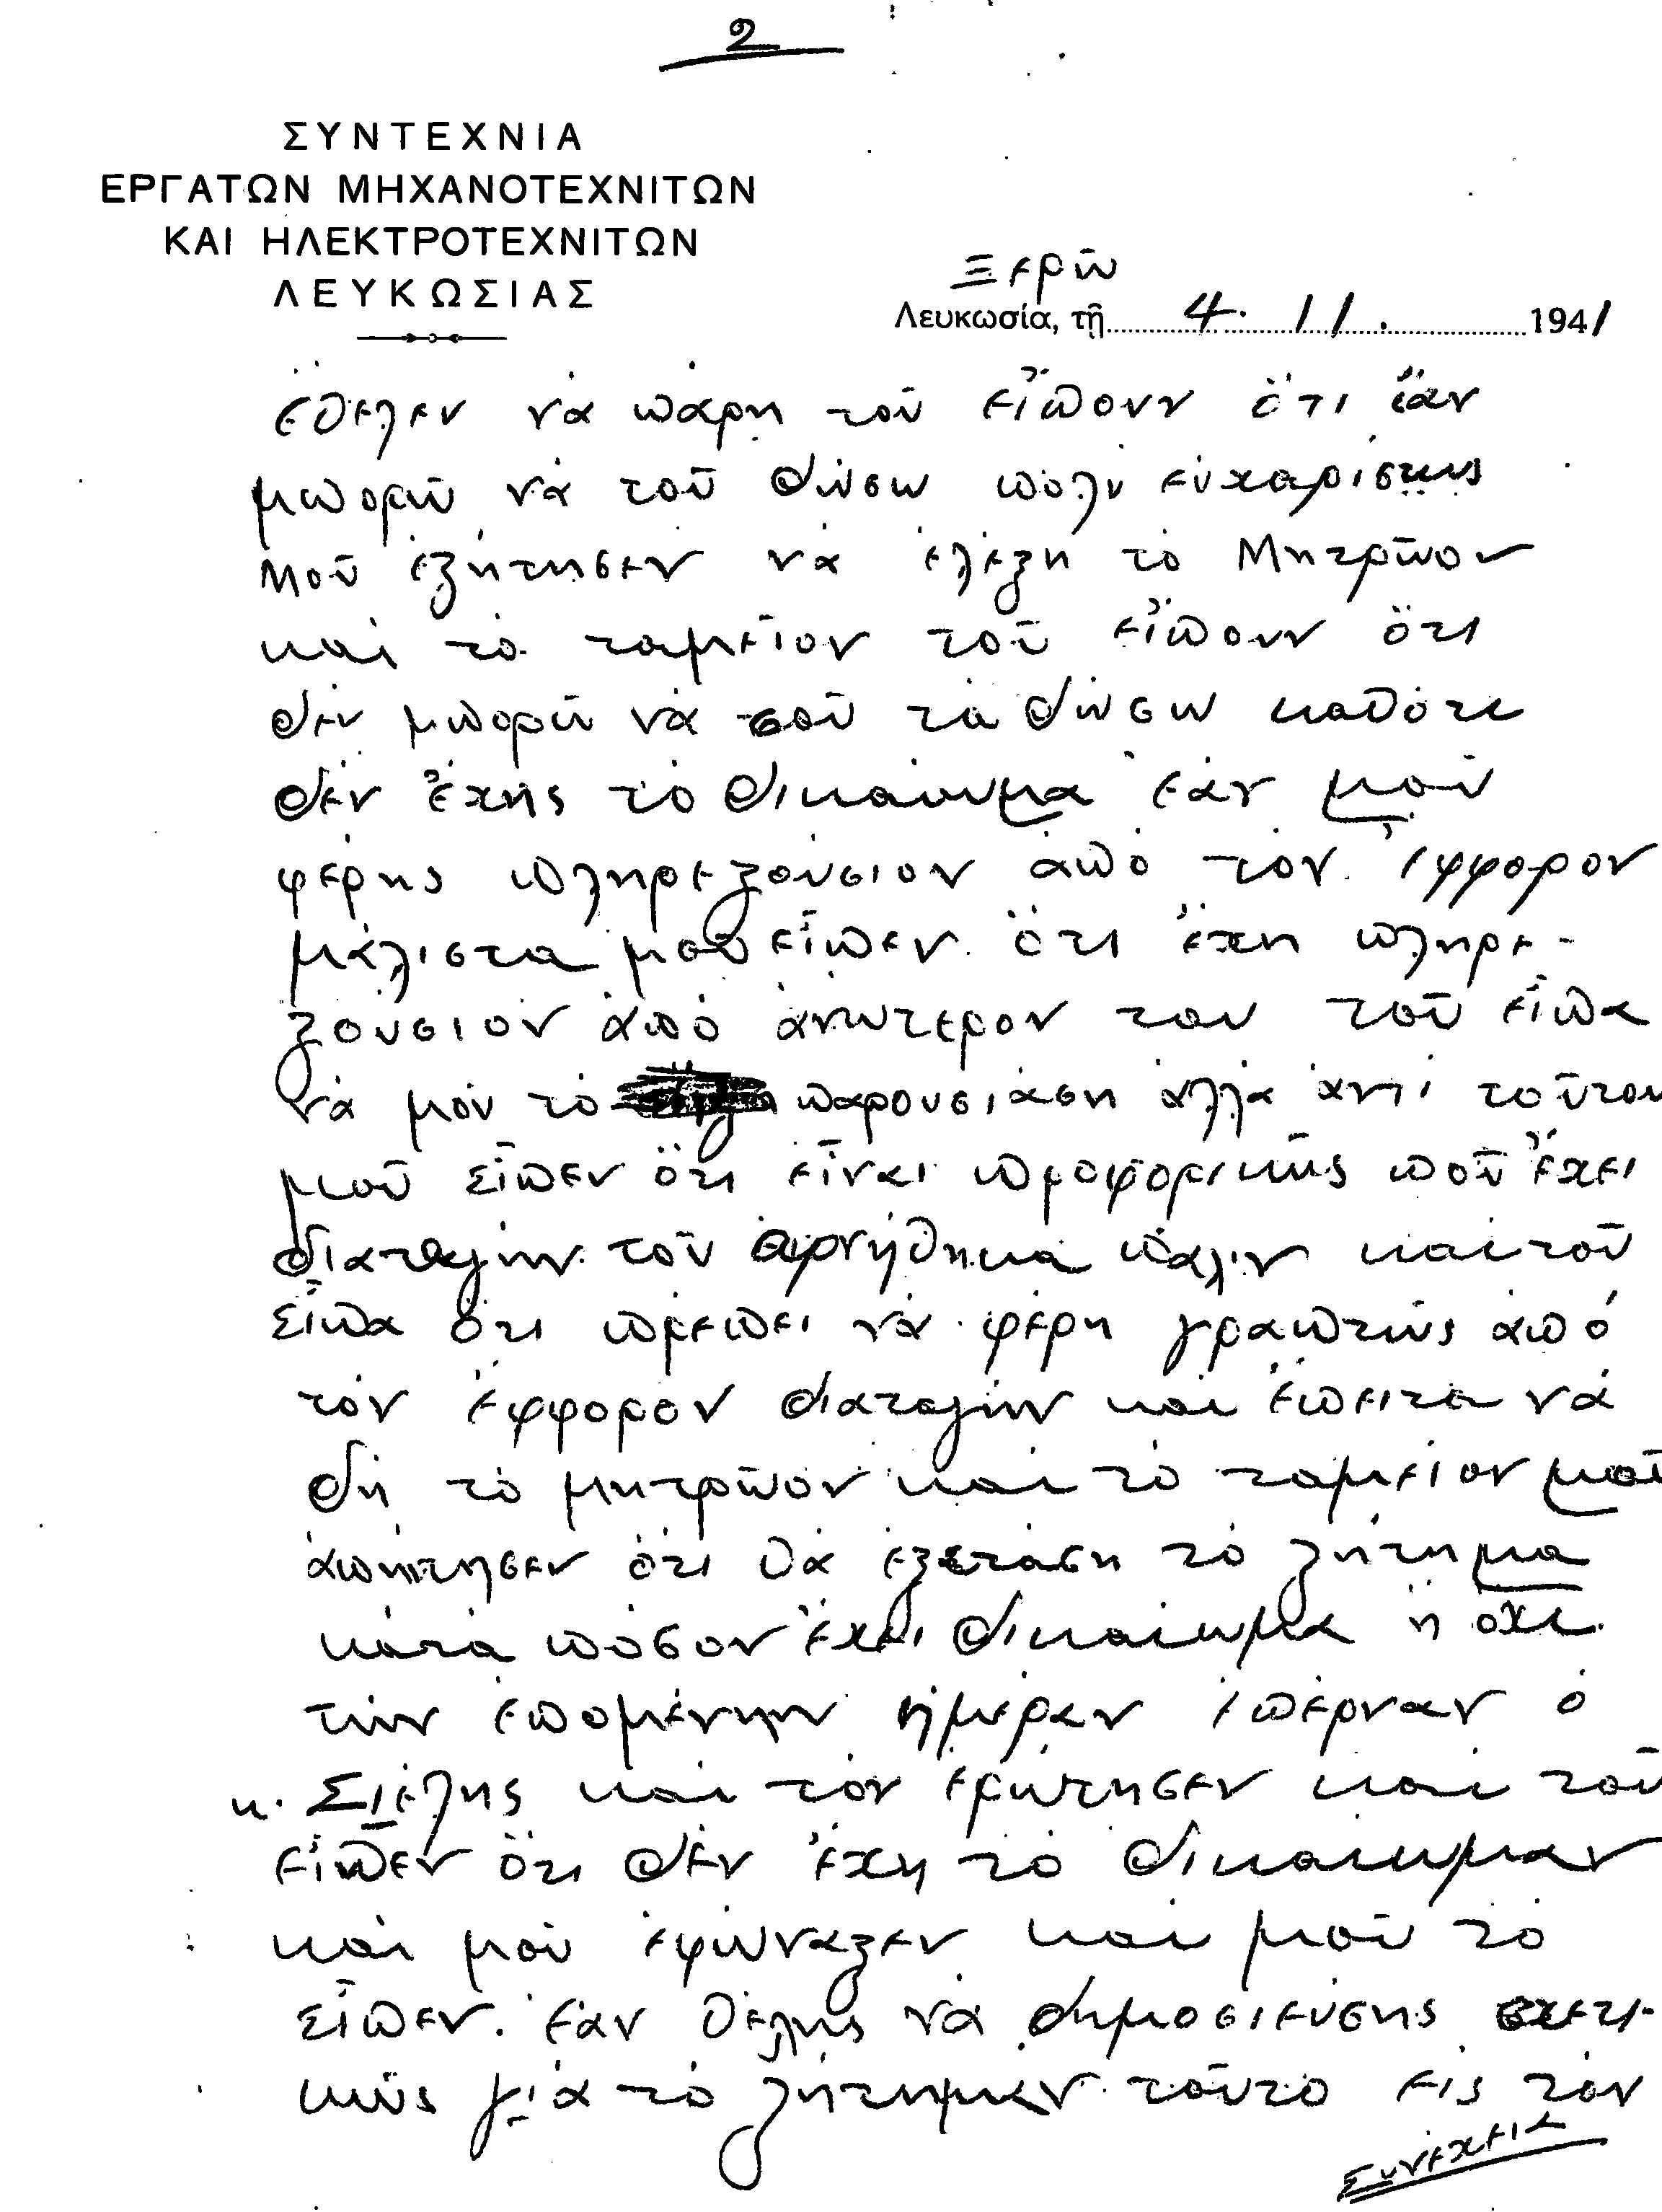 2
ΣΥΝΤΕΧΝΙΑ
ΕΡΓΑΤΩΝ ΜΗΧΑΝΟΤΕΧΝΙΤΩΝ
ΚΑΙ ΗΛΕΚΤΡΟΤΕΧΝΙΤΩΝ
ΛΕΥΚΩΣΙΑΣ
Ξερῶ
Λευκωσία, τῇ 4. 11. 1941
ἔθελεν νά πάρη τοῦ εἶπουν ὅτι ἐάν
μπορῶ νά τοῦ δώσω πολύ εὐχαρίστως
Μοῦ ἐζήτησεν νά ἐλέξη τό Μητρῶον
καί τό ταμεῖον τοῦ εἶπουν ὅτι
δέν μπορῶ νά σοῦ τά δώσω καθότι
δέν ἔχης τό δικαίωμα ἐάν μοῦ
φέρης πληρεξούσιον ἀπό τόν ἔφφορον
μάλιστα μοῦ εἶπεν ὅτι ἔχη πληρε-
ξούσιον ἀπό ἀνώτερον του τοῦ εἶπα
νά μού τό παρουσιάση ἀλλά ἀντί τοῦτου
μοῦ εἶπεν ὅτι εἶναι προφορικῶς ποῦ ἔχει
διαταγήν τοῦ ἀρνήθηκα πάλιν καί τοῦ
εἶπα ὅτι πρέπει νά φέρη γραπτώς ἀπό
τόν ἔφφορον διαταγήν καί ἔπειτα νά
δή τό μητρῶον καί τό ταμείον μοῦ
ἀπήντησεν ὅτι θά ἐξετάση τό ζήτημα
κατά πόσον ἔχει δικαίωμα ἤ ὄχι.
τήν ἑπομένην ἡμέραν ἐπέρναν ὁ
κ. Σιέλης καί τόν ἐρώτησεν καί τοῦ
εἶπεν ὅτι δέν ἔχη τό δικαίωμαν
καί μοῦ ἐφώναξεν καί μοῦ τό
εἶπεν. ἐάν θέλης νά δημοσιεύσης σχετι-
κῶς γιά τό ζήτημαν τοῦτο εἰς τόν
Συνέχεια